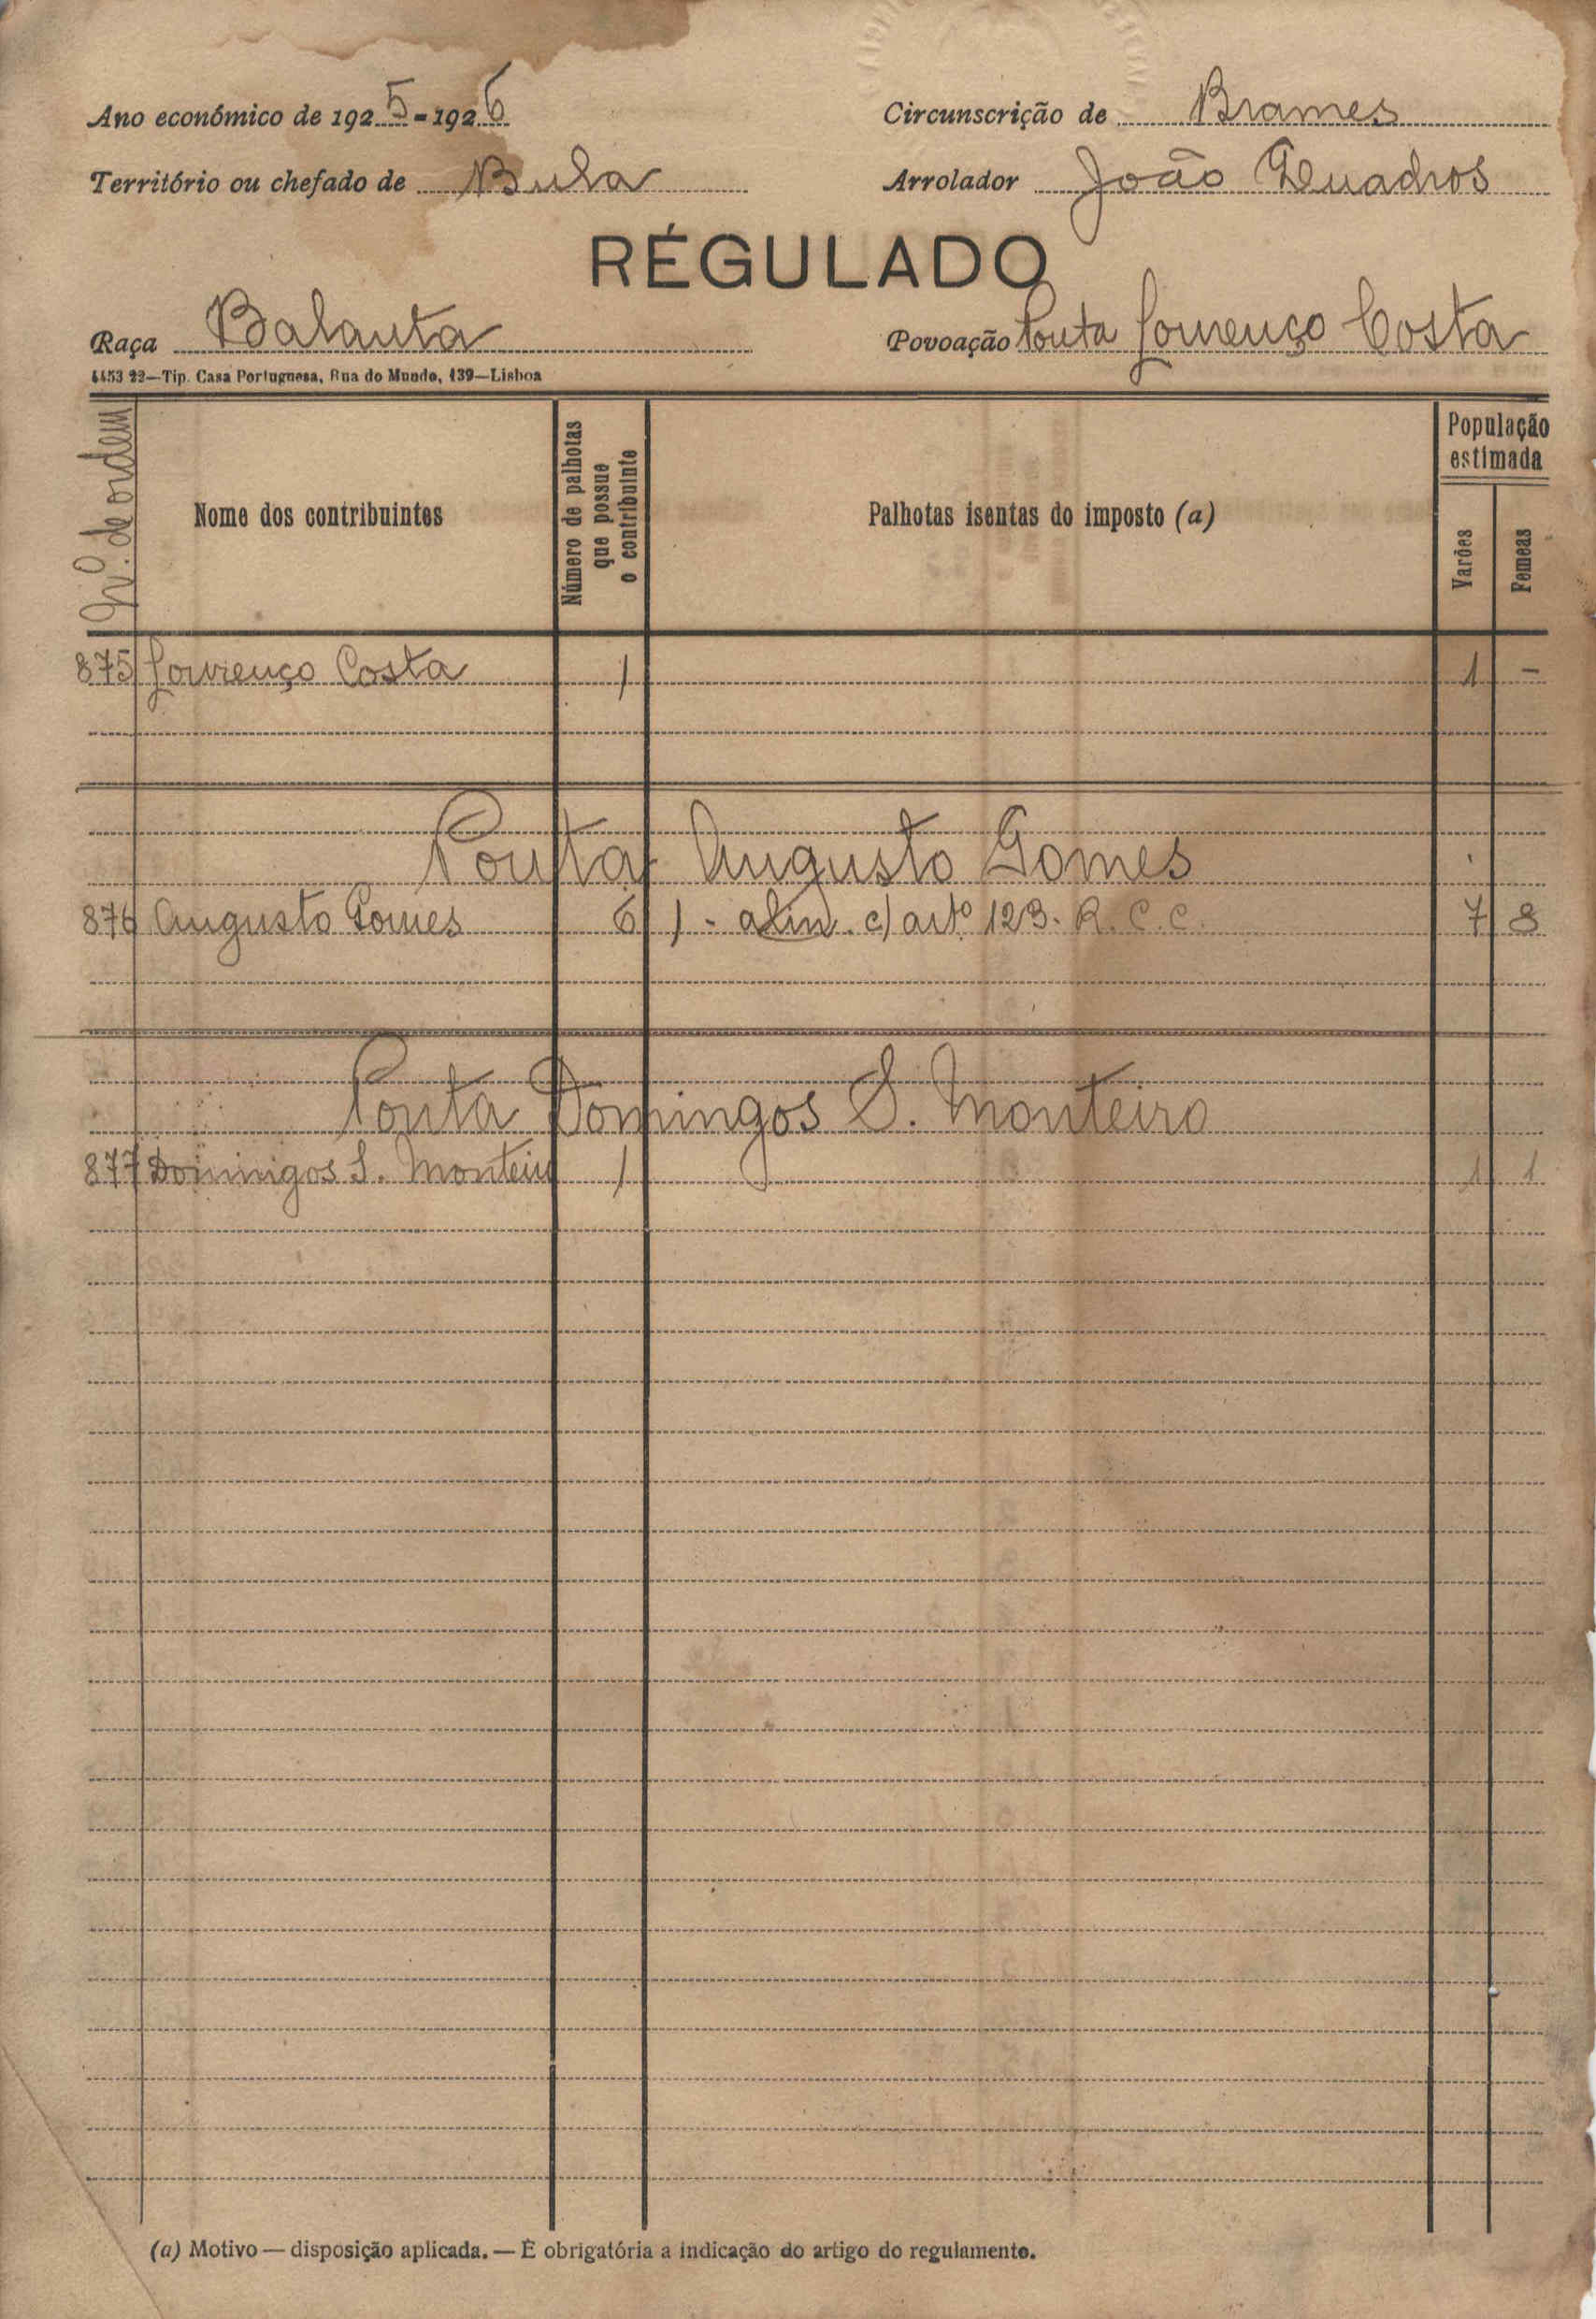 Ano económico de 1925-1926
Circunscrição de Brames
Território ou chefado de Bula
Arrolador João Quadros
RÉGULADO
Raça Balanta
Povoação Ponta Lourenço Costa
4453 22—Tip. Casa Portuguesa, Rua do Mundo, 139—Lisboa
Nº. de ordem
Nome dos contribuintes
Número de palhotas que possue o contribuinte
Palhotas isentas do imposto (a)
População estimada
Varões
Femeas
875 Lourenço Costa 1 1 -
Ponta Augusto Gomes
876 Augusto Gomes 6 1 - alin. c) artº 123. R. C. C. 7 8
Ponta Domingos S. Monteiro
877 Domingos S. Monteiro 1 1 1
(a) Motivo — disposição aplicada. — É obrigatória a indicação do artigo do regulamento.